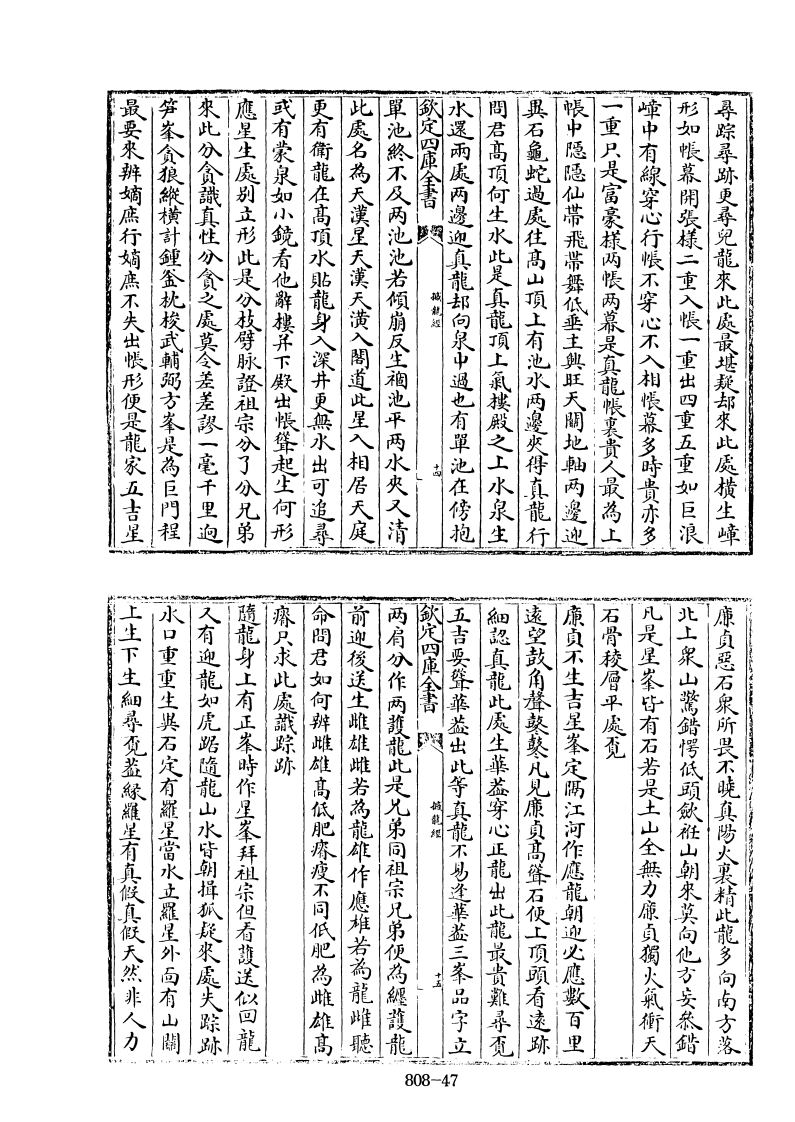 尋踪尋跡更尋兒龍來此處最堪疑却來此處橫生嶂
形如帳幕開張樣二重入帳一重出四重五重如巨浪
嶂中有線穿心行帳不穿心不入相帳幕多時貴亦多
一重只是富豪樣兩帳兩幕是真龍帳裏貴人最為上
帳中隠隠仙帶飛帶舞低垂主興旺天關地軸兩邊迎
異石龜蛇過處往髙山頂上有池水兩邊夾得真龍行
問君髙頂何生水此是真龍頂上氣樓殿之上水泉生
水還兩處兩邊迎真龍却向泉中過也有單池在傍抱
欽定四庫全書
撼龍經
十四
單池終不及兩池池若傾崩反生禍池平兩水夾又清
此處名為天漢星天漢天潢入閣道此星入相居天庭
更有衛龍在髙頂水貼龍身入深井更無水出可追尋
或有蒙泉如小鏡看他辭樓并下殿出帳聳起生何形
應星生處别立形此是分枝劈脉證祖宗分了分兄弟
來此分貪識真性分貪之處莫令差差謬一毫千里逈
笋峯貪狼縱橫計鍾釡枕梭武輔弼方峯是為巨門程
最要來辨嫡庶行嫡庶不失出帳形便是龍家五吉星
廉貞惡石衆所畏不曉真陽火裏精此龍多向南方落
北上衆山驚錯愕低頭歛袵山朝來莫向他方妄叅錯
凡是星峯皆有石若是土山全無力廉貞獨火氣衝天
石骨稜層平處覔
廉貞不生吉星峯定隔江河作應龍朝迎必應數百里
遠望鼓角聲鼕鼕凡見廉貞髙聳石便上頂頭看遠跡
細認真龍此處生華葢穿心正龍出此龍最貴難尋覔
五吉要聳華葢出此等真龍不易逢華葢三峯品字立
欽定四庫全書
撼龍經
十五
兩肩分作兩䕶龍此是兄弟同祖宗兄弟便為纒䕶龍
前迎後送生雌雄雌若為龍雄作應雄若為龍雌聽
命問君如何辨雌雄髙低肥瘠瘦不同低肥為雌雄髙
瘠只求此處識踪跡
隨龍身上有正峯時作星峯拜祖宗但看䕶送似回龍
又有迎龍如虎踞隨龍山水皆朝揖狐疑來處失踪跡
水口重重生異石定有羅星當水立羅星外面有山關
上生下生細尋覔葢緣羅星有真假真假天然非人力
808-47